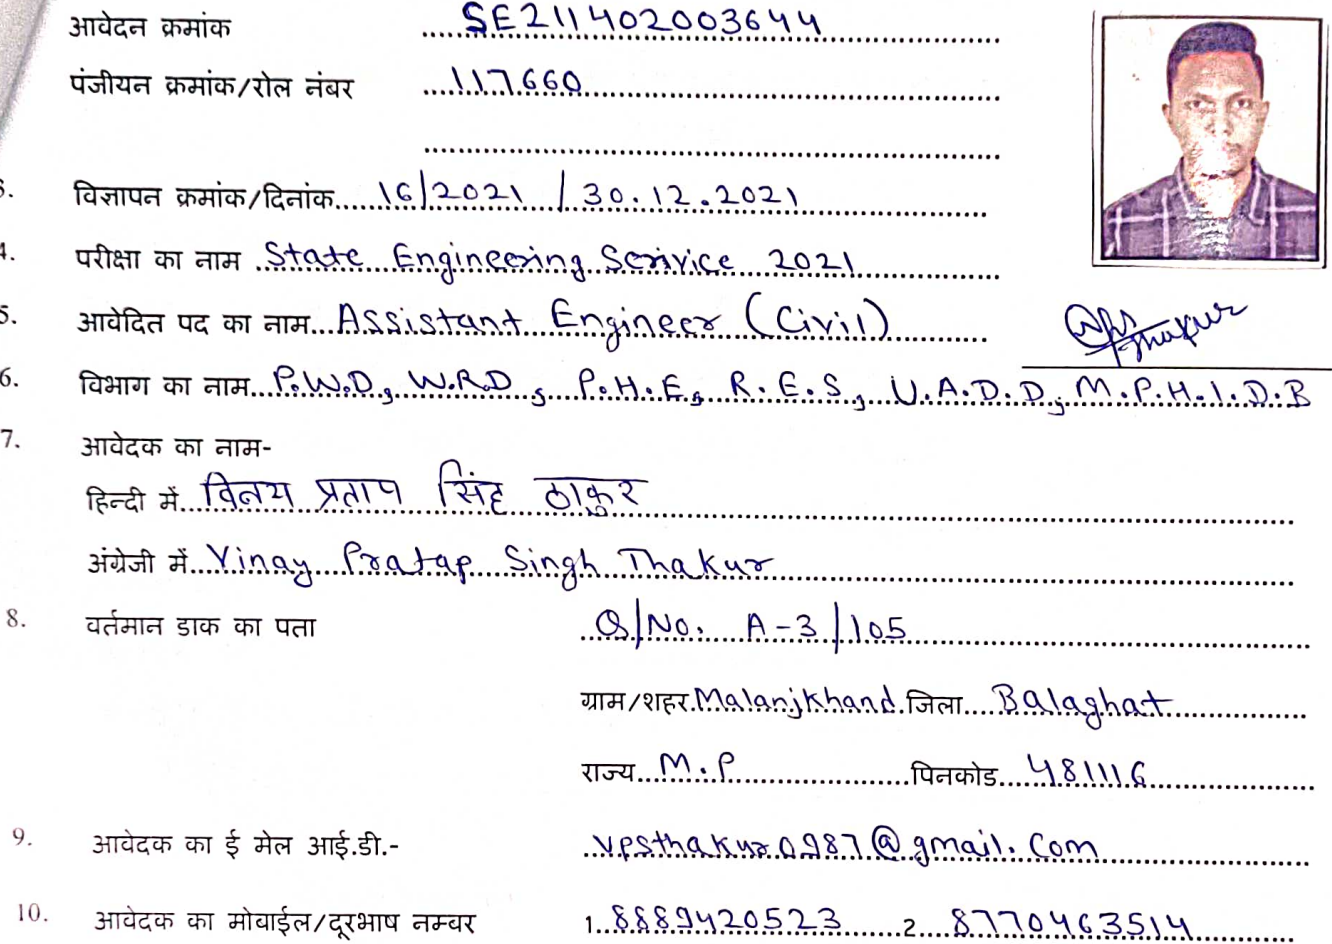 आवेदन क्रमांक SE211402003644
पंजीयन क्रमांक/रोल नंबर 117660
विज्ञापन क्रमांक/दिनांक 16/2021 / 30.12.2021
4. परीक्षा का नाम State Engineering Serivice 2021
5. आवेदित पद का नाम Assistant Engineer (Civil)
Thakur
6. विभाग का नाम P.W.D, W.R.D, P.H.E, R.E.S, U.A.D.D, M.P.H.I.D.B
7. आवेदक का नाम-
हिन्दी में विनय प्रताप सिंह ठाकुर
अंग्रेजी में Vinay Pratap Singh Thakur
8. वर्तमान डाक का पता Q/No. A-3/105
ग्राम/शहर Malanjkhand जिला Balaghat
राज्य M.P पिनकोड 481116
9. आवेदक का ई मेल आई.डी.- vpsthakur0987@gmail.com
10. आवेदक का मोबाईल/दूरभाष नम्बर 1. 8889420523 2. 8770463514